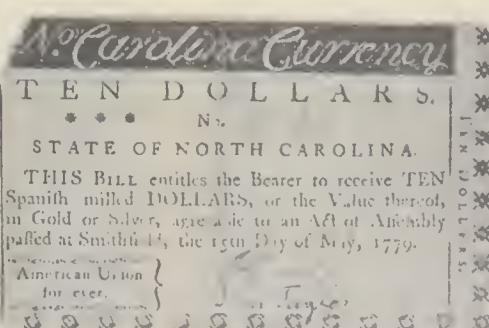 No. Carolina Currency
TEN DOLLARS.
No.
STATE OF NORTH CAROLINA.
THIS BILL entitles the Bearer to receive TEN
Spaniſh milled DOLLARS, or the Value thereof,
in Gold or Silver, agreeable to an Act of Aſſembly
paſſed at Smithfield, the 15th Day of May, 1779.
American Union
for ever.
TEN DOLLARS.